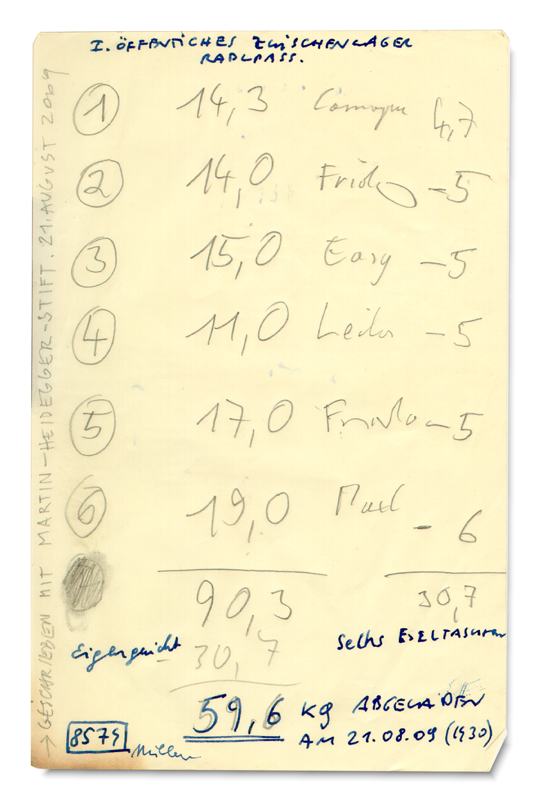 I. ÖFFENTICHES ZWISCHENLAGER
RADLPASS.
1 14,3 4,7
2 14,0 -5
3 15,0 Easy -5
4 11,0 Leila -5
5 17,0 -5
6 19,0 - 6
90,3 30,7
Eigengewicht - 30,7 Sechs ESELTASCHEN
59,6 kg ABGELADEN
AM 21.08.09 (1930)
8579
→ GESCHRIEBEN MIT MARTIN-HEIDEGGER-STIFT. 21. AUGUST 2009